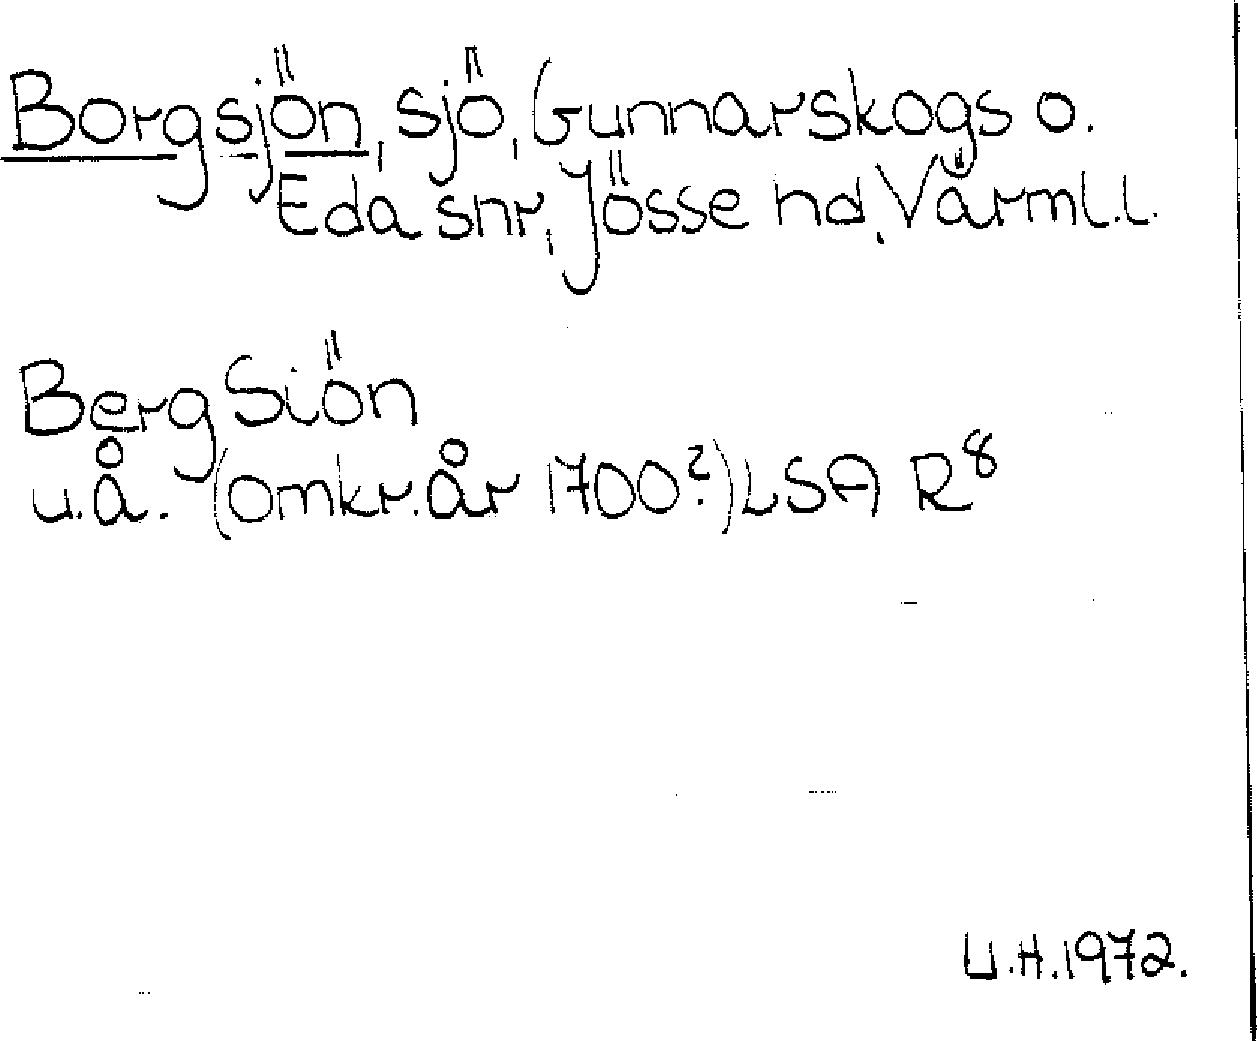 Borgsjön, sjö, Gunnarskogs o.
Eda snr, Jösse hd, Värml.l.
Berg Siön
u.å. (omkr. år 1700?) LSA R8
U.H.1972.